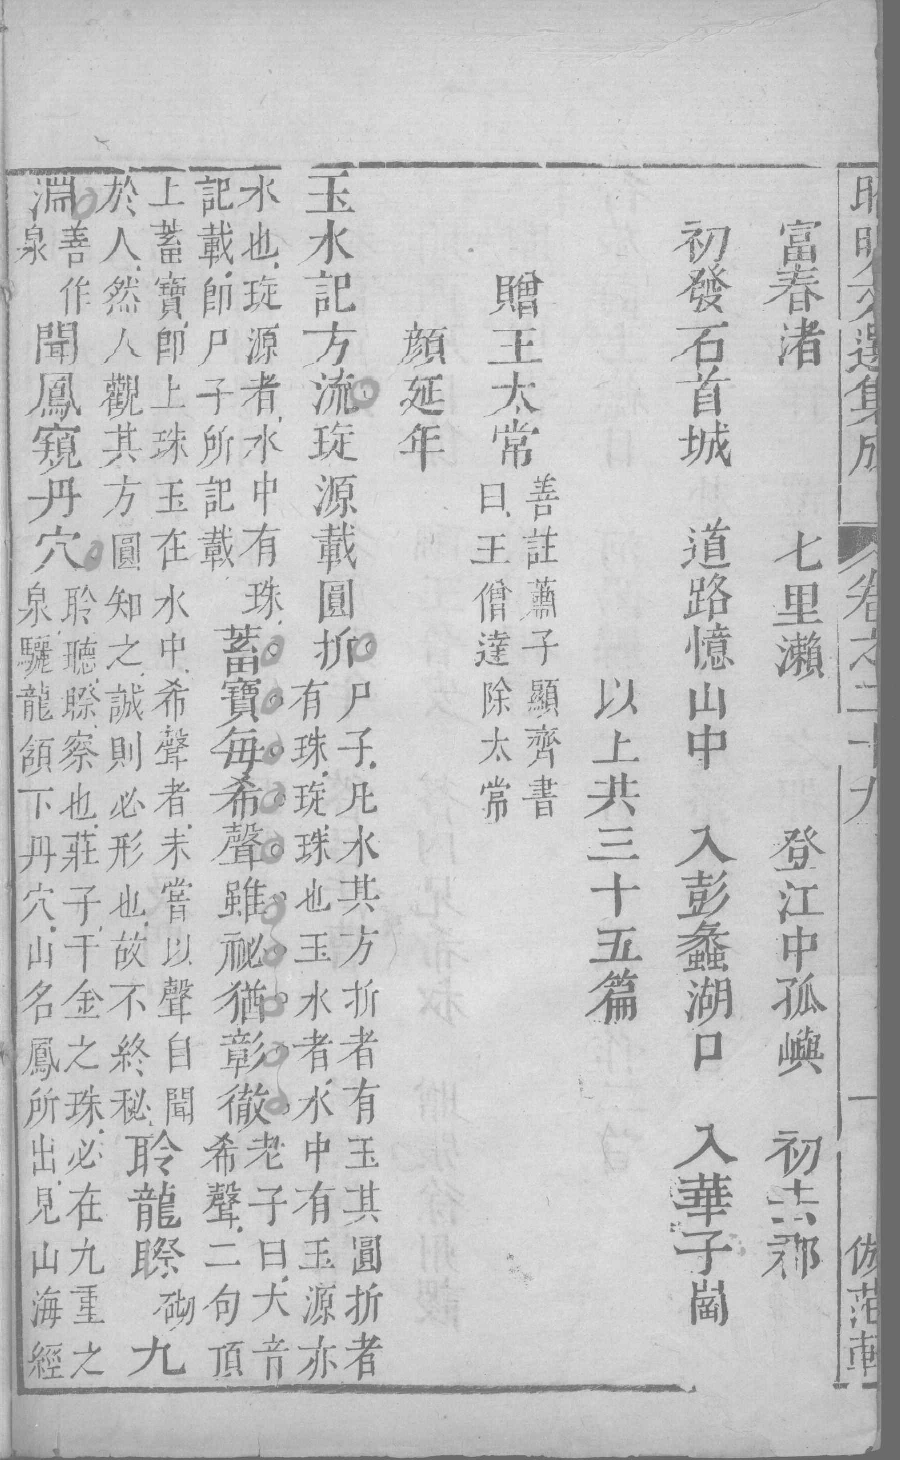 昭明文選集成 卷之二十九 一 倣范軒
富春渚 七里瀨 登江中孤嶼 初去郡
初發石首城 道路憶山中 入彭蠡湖口 入華子崗
以上共三十五篇
贈王太常 善註蕭子顯齊書曰王僧達除太常
顏延年
玉水記方流琁源載圓折 尸子凡水其方折者有玉其圓折者有珠琁珠也玉水者水中有玉源亦
水也琁源者水中有珠記載即尸子所記載 蓄寶每希聲雖祕猶彰徹 老子曰大音希聲二句頂
上蓄寶即上珠玉在水中希聲者未嘗以聲自聞於人然人觀其方圓知之誠則必形也故不終秘 聆龍䁽 砌 九
淵 善作泉 聞鳳窺丹穴 聆聽䁽察也莊子千金之珠必在九重之泉驪龍頷下丹穴山名鳳所出見山海經